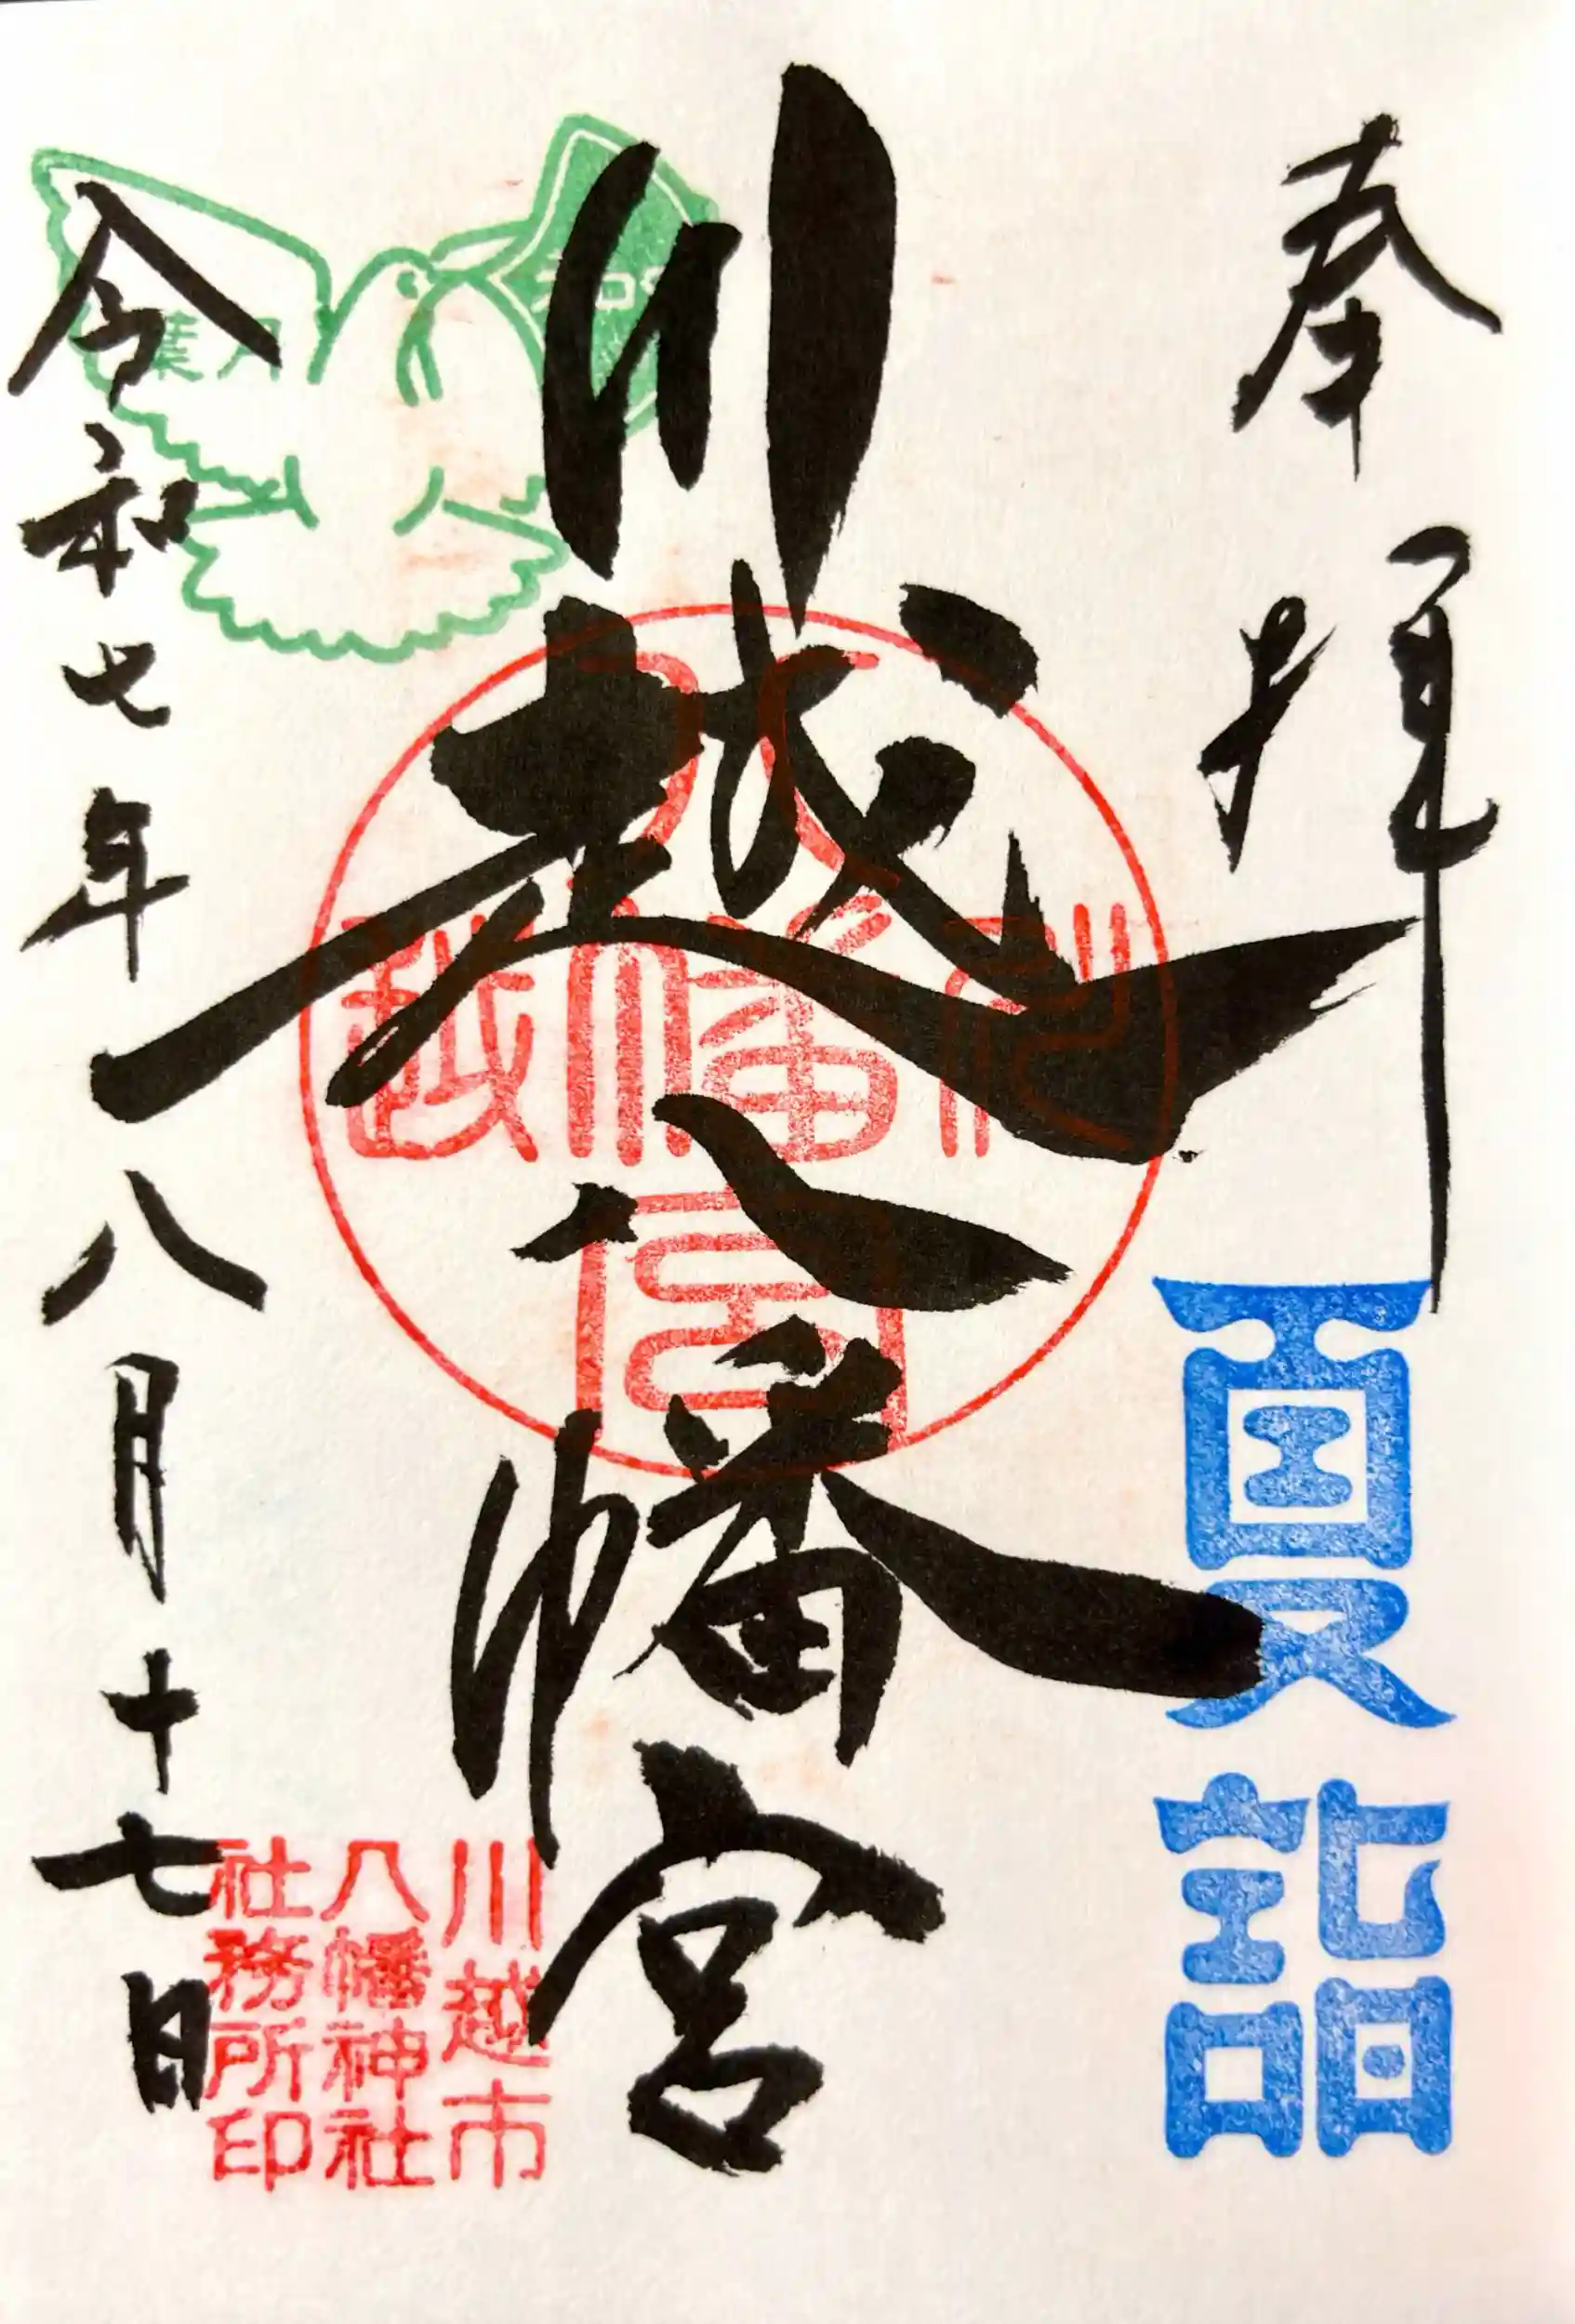 奉拝
夏詣
川越八幡宮
川越八幡宮
川越市
八幡神社
社務所印
葉月
令和七年八月十七日